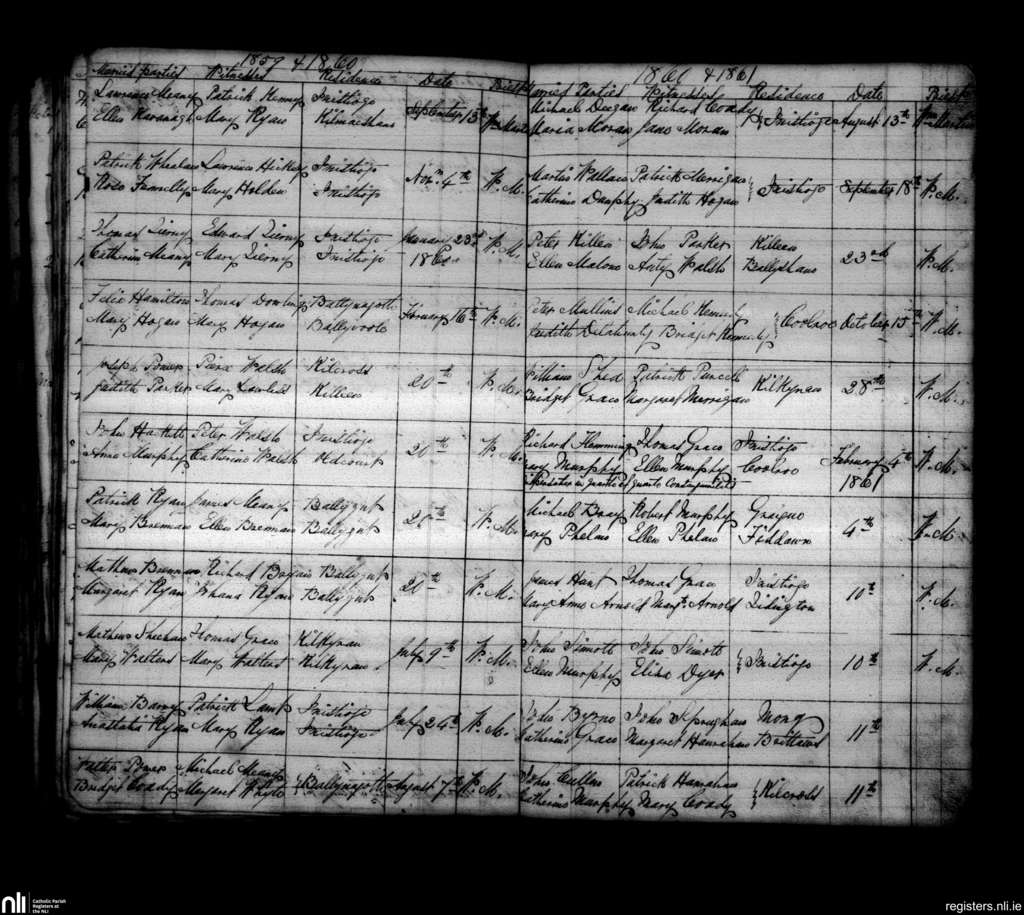 1859 & 1860
Married parties Witnesses Residence Date Priest
Lawrence Meany Patrick Kenny Inistioge September 13th Wm. Mart
Ellen Kavanagh Mary Ryan Kilmacshane
Patrick Whelan Lawrence Hickey Inistioge Novm. 4th W. M.
Rose Fennelly Mary Holden Inistioge
Thomas Tierny Edward Tierny Inistioge January 23rd W. M.
Catherine Meany Mary Tierny Inistioge 1860
Felix Hamilton Thomas Dowling Ballynagotte February 16th W. M.
Mary Hogan Mary Hogan Ballyvoole
Joseph Power Pierce Walsh Kilcross 20th W. M.
Judith Parker Mary Lawless Killeen
John Hackett Peter Walsh Inistioge 20th W. M.
Anne Murphy Catherine Walsh
Patrick Ryan James Meany 20th W. M.
Mary Brennan Ellen Brennan
Mathew Brennan Richard Ballygub 20th W. M.
Margaret Ryan Johana Ryan Ballygub
Mathew Sheehan Thomas Grace Kilkyran July 9th W. M.
Mary Walters Mary Walters Kilkyran
William Barry Patrick Lamb Inistioge July 24th W. M.
Anastatia Ryan Mary Ryan Inistioge
Walter Power Michael Meany Ballynagotte August 7th W. M.
Bridget Coady Margaret Whyte
1860 & 1861
Married Parties Witnesses Residence Date Priest
Michael Deegan Richard Coady Inistioge August 13th Wm. Martin
Maria Moran Jane Moran
Martin Wallace Patrick Merrigan Inistioge September 18th W. M.
Catherine Dunphy Judith Hogan
Peter Killen John Parker Killeen 23rd W. M.
Ellen Malone Anty Walsh Ballyshane
Peter Mullins Michael Kennedy Coolroe October 15th W. M.
Judith Delahunty Bridget Kennedy
William Shea Patrick Purcell Kilkyran 28th W. M.
Bridget Grace Margaret Merrigan
Richard Flemming Thomas Grace Inistioge February 4th W. M.
Mary Murphy Ellen Murphy Coolroe 1861
in quarto et quarto
Michael Robert Murphy Graigue 4th W. M.
Mary Phelan Ellen Phelan Fiddawn
James Hunt Thomas Grace Inistioge 10th W. M.
Mary Anne Arnold Margt. Arnold
John Sinnott John Sinnott Inistioge 10th W. M.
Ellen Murphy Eliza Dyer
John Byrne John Sprughan Mong 11th
Catherine Grace Margaret Hanrahan Brittas
John Cullen Patrick Hanrahan Kilcross 11th
Catherine Murphy Mary Coady
nli Catholic Parish
Registers at
the NLI
registers.nli.ie